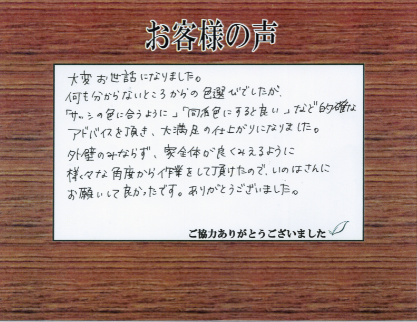 お客様の声
大変お世話になりました。
何も分からないところからの色選びでしたが、
「サッシの色に合うように」「同系色にすると良い」など的確な
アドバイスを頂き、大満足の仕上がりになりました。
外壁のみならず、家全体が良くみえるように
様々な角度から作業をして頂けたので、いのはさんに
お願いして良かったです。ありがとうございました。
ご協力ありがとうございました